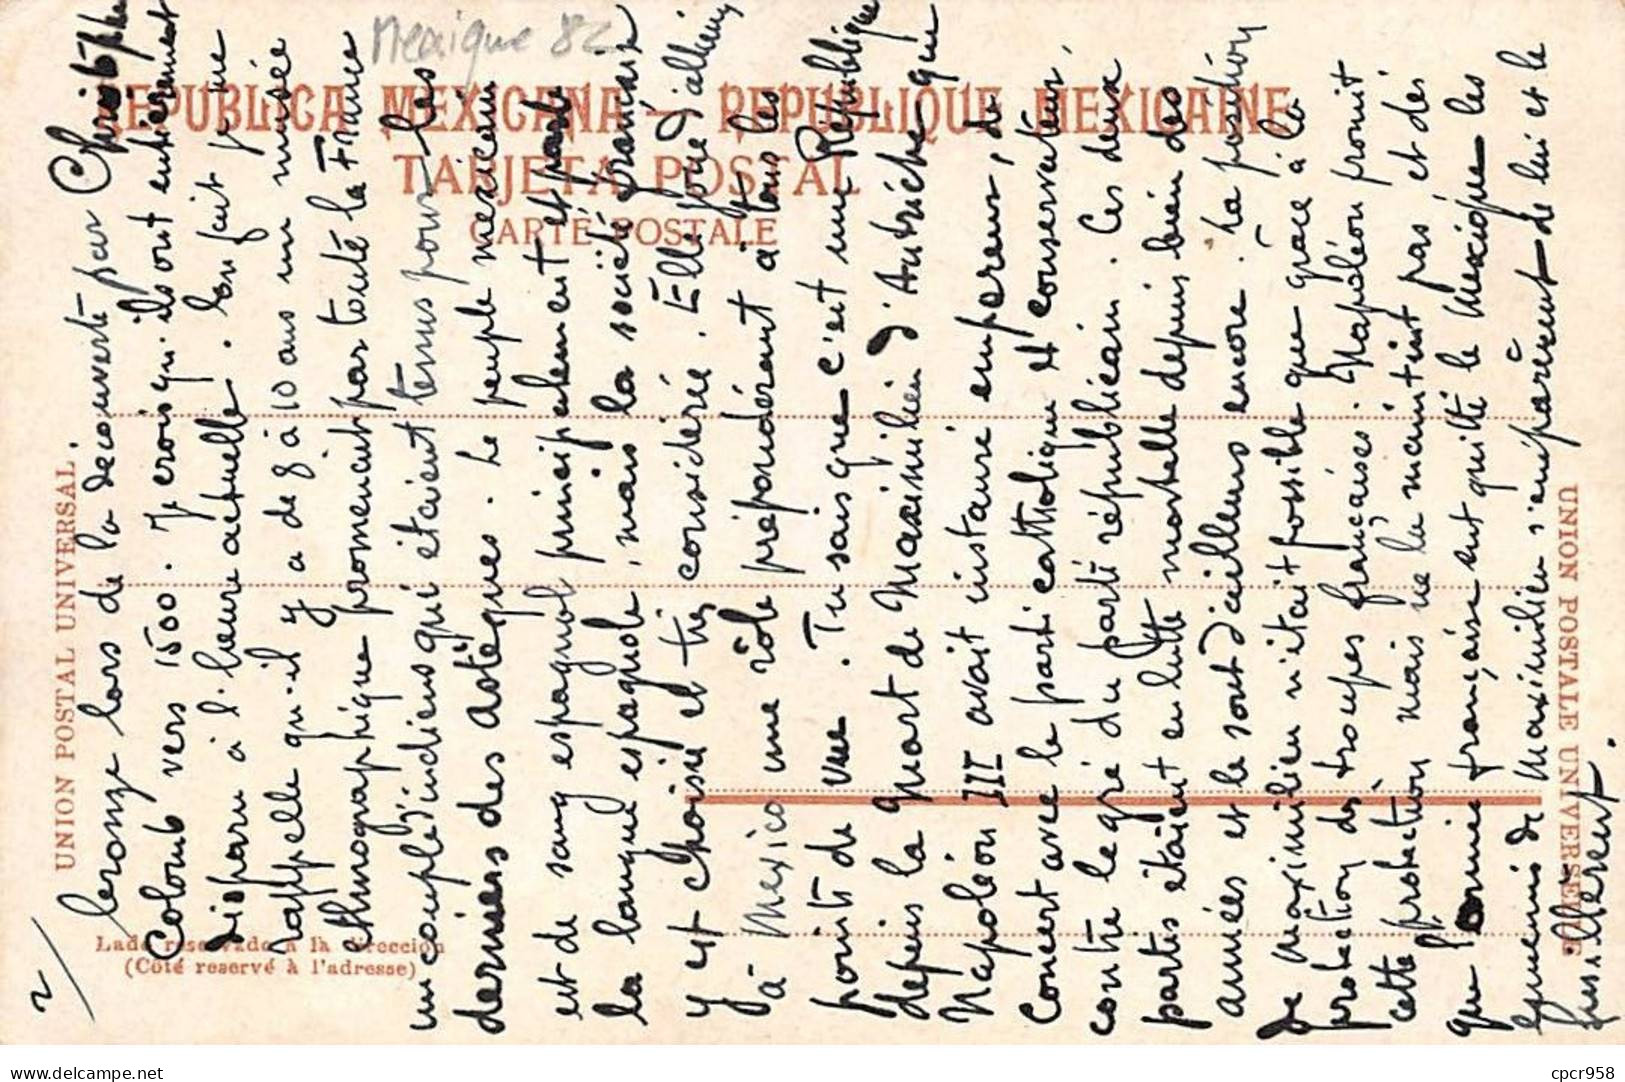 Mexique 82
REPUBLICA MEXICANA — REPUBLIQUE MEXICAINE
TARJETA POSTAL
CARTE POSTALE
UNION POSTAL UNIVERSAL
UNION POSTALE UNIVERSELLE
Lado reservado à la direccion
(Côté reservé à l'adresse)
2/
bronze lors de la découverte par Christophe
Colomb vers 1500. Je crois qu'ils ont entièrement
disparu à l'heure actuelle. Son fait que
rappelle qu'il y a de 8 à 10 ans un musée
ethnographique promenait par toute la France
un couple d'indiens qui étaient tenus pour les
derniers des Astèques. Le peuple mexicain
est de sang espagnol principalement et parle
la langue espagnole, mais la société française
y est choisie et très considérée. Elle joue d'ailleurs
à Mexico une rôle prépondérant à tous les
points de vue. Tu sais que c'est une République
depuis la mort de Maximilien d'Autriche que
Napoléon III avait instauré empereur, de
concert avec le parti catholique et conservateur,
contre le gré du parti républicain. Ces deux
partis étaient en lutte mortelle depuis bien des
années et le sont d'ailleurs encore. La position
de Maximilien n'était possible que grâce à la
protection des troupes françaises. Napoléon promit
cette protection mais ne la maintint pas et dès
que l'armée française eut quitté le Mexique les
ennemis de Maximilien s'emparèrent de lui et le
fusillèrent.
cpcr958